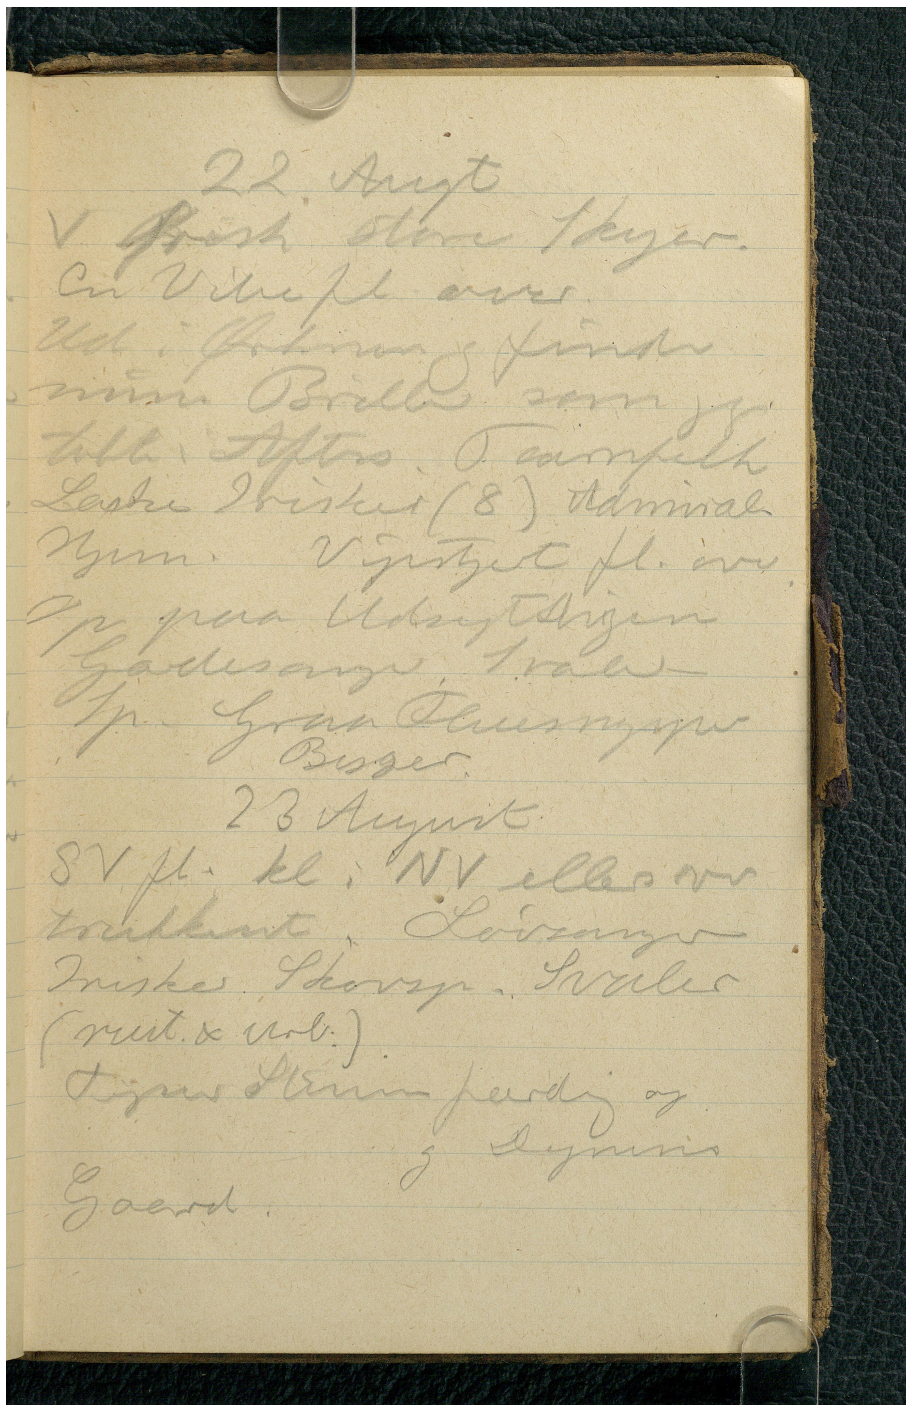 22 Augt
V frisk store Skyer.
En Vibe fl. over.
Ud i Ørkenen & finde
mine Briller som jeg
tabte i Aftes. Taarnfalk
Lastre Irisker (8) Admiral
Hjem. Vipstjert fl. over.
Op paa Udsigten igen
Gadesanger, Svaler
Sp. Graa Fluesnapper
Bysvaler.
23 August
SV fl. kl. i NV ellers over
trukkent. Løvsanger
Irisker. Skovsp. Svaler
(rust. & urb.)
færdig og
& Dyrenes
Gaard.